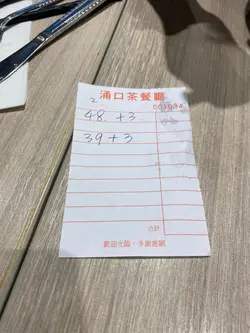 涌口茶餐廳
2.
48 +3
39 +3
合計
歡迎光臨·多謝惠顧